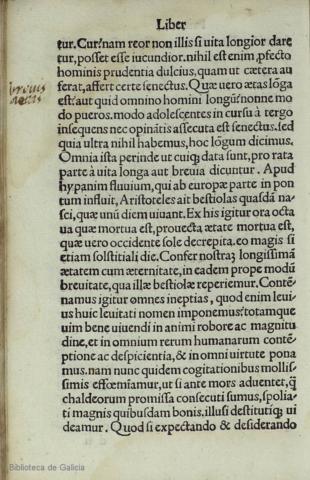 Liber
tur. Cur? nam reor non illis si uita longior dare
tur, posset esse iucundior. nihil est enim, ꝓfecto
hominis prudentia dulcius, quam ut cætera au
ferat, affert certe senectus. Quæ uero ætas lōga
est? aut quid omnino homini longū? nonne mo
do pueros. modo adolescentes in cursu à tergo
insequens nec opināntis assecuta est senectus. sed
quia ultra nihil habemus, hoc lōgum dicimus.
Omnia ista perinde ut cuiqꝫ data sunt, pro rata
parte à uita longa aut breuia dicuntur. Apud
hypanim fluuium, qui ab europæ parte in pon
tum influit, Aristoteles ait bestiolas quasdā na-
sci, quæ unū diem uiuant. Ex his igitur ora octa
ua quæ mortua est, prouecta ætate mortua est,
quæ uero occidente sole decrepita. eo magis si
etiam solstitiali die. Confer nostraꝫ longissimā
ætatem cum æternitate, in eadem prope modū
breuitate, qua illæ bestiolæ reperiemur. Contē-
namus igitur omnes ineptias, quod enim leuiu-
us huic leuitati nomen imponemus? totamque
uim bene uiuendi in animi robore ac magnitu
dine, et in omnium rerum humanarum contē-
ptione ac despicientia, & in omni uirtute pona
mus. nam nunc quidem cogitationibus mollis-
simis effœmiamur, ut si ante mors aduentet, q̄
chaldeorum promissa consecuti sumus, spolia-
ti magnis quibusdam bonis, illusi destitutiqꝫ ui
deamur. Quod si expectando & desiderando
breuis
ætas
Biblioteca de Galicia